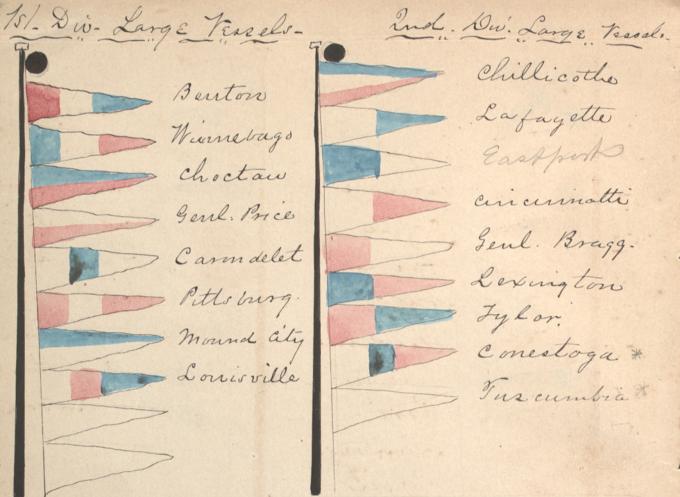 1st. Div. Large Vessels.
Benton
Winnebago
Choctaw
Genl. Price
Carondelet
Pittsburg.
Mound City
Louisville
2nd. Div. Large Vessels.
Chillicothe
Lafayette
Eastport
Cincinnatti
Genl. Bragg.
Lexington
Tylor.
Conestoga *
Tuscumbia *